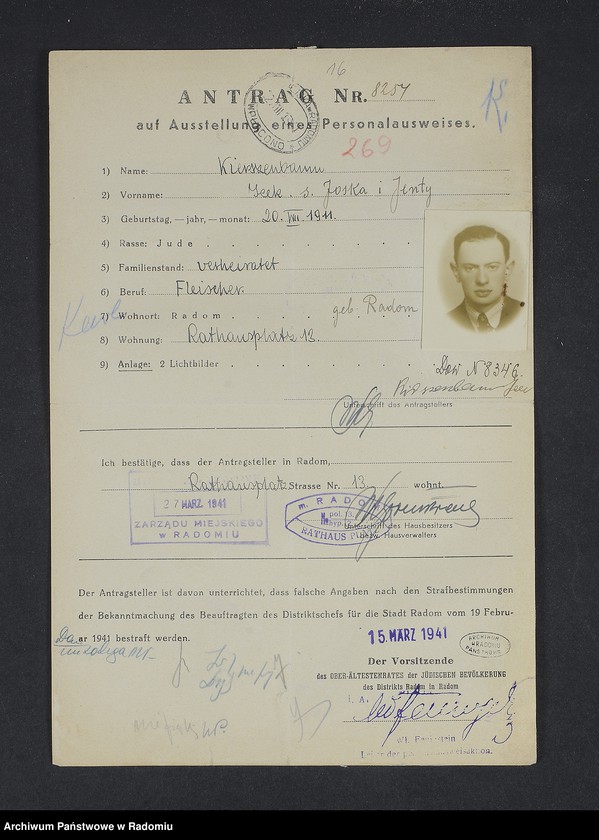 16
ANTRAG NR. 8254
auf Ausstellung eines Personalausweises.
269
1) Name: Kierszenbaum
2) Vorname: Icek s. Joska i Jenty
3) Geburtstag, — jahr, — monat: 20. VIII. 1911.
4) Rasse: Jude
5) Familienstand: verheiratet
6) Beruf: Fleischer
7) Wohnort: Radom geb. Radom
8) Wohnung: Rathausplatz 13.
9) Anlage: 2 Lichtbilder
Dow N 8346.
Unterschrift des Antragstellers
Ich bestätige, dass der Antragsteller in Radom,
Rathausplatz Strasse Nr. 13. wohnt.
27 MARZ 1941
ZARZĄDU MIEJSKIEGO
W RADOMIU
m. RADOM
RATHAUS
Unterschrift des Hausbesitzers
bezw. Hausverwalters
Der Antragsteller ist davon unterrichtet, dass falsche Angaben nach den Strafbestimmungen
der Bekanntmachung des Beauftragten des Distriktschefs für die Stadt Radom vom 19 Febru-
ar 1941 bestraft werden.
15. MÄRZ 1941
ARCHIWUM
PAŃSTWOWE
Der Vorsitzende
des OBER-ÄLTESTENRATES DER JÜDISCHEN BEVÖLKERUNG
des Distrikts Radom in Radom
i. A.
Archiwum Państwowe w Radomiu